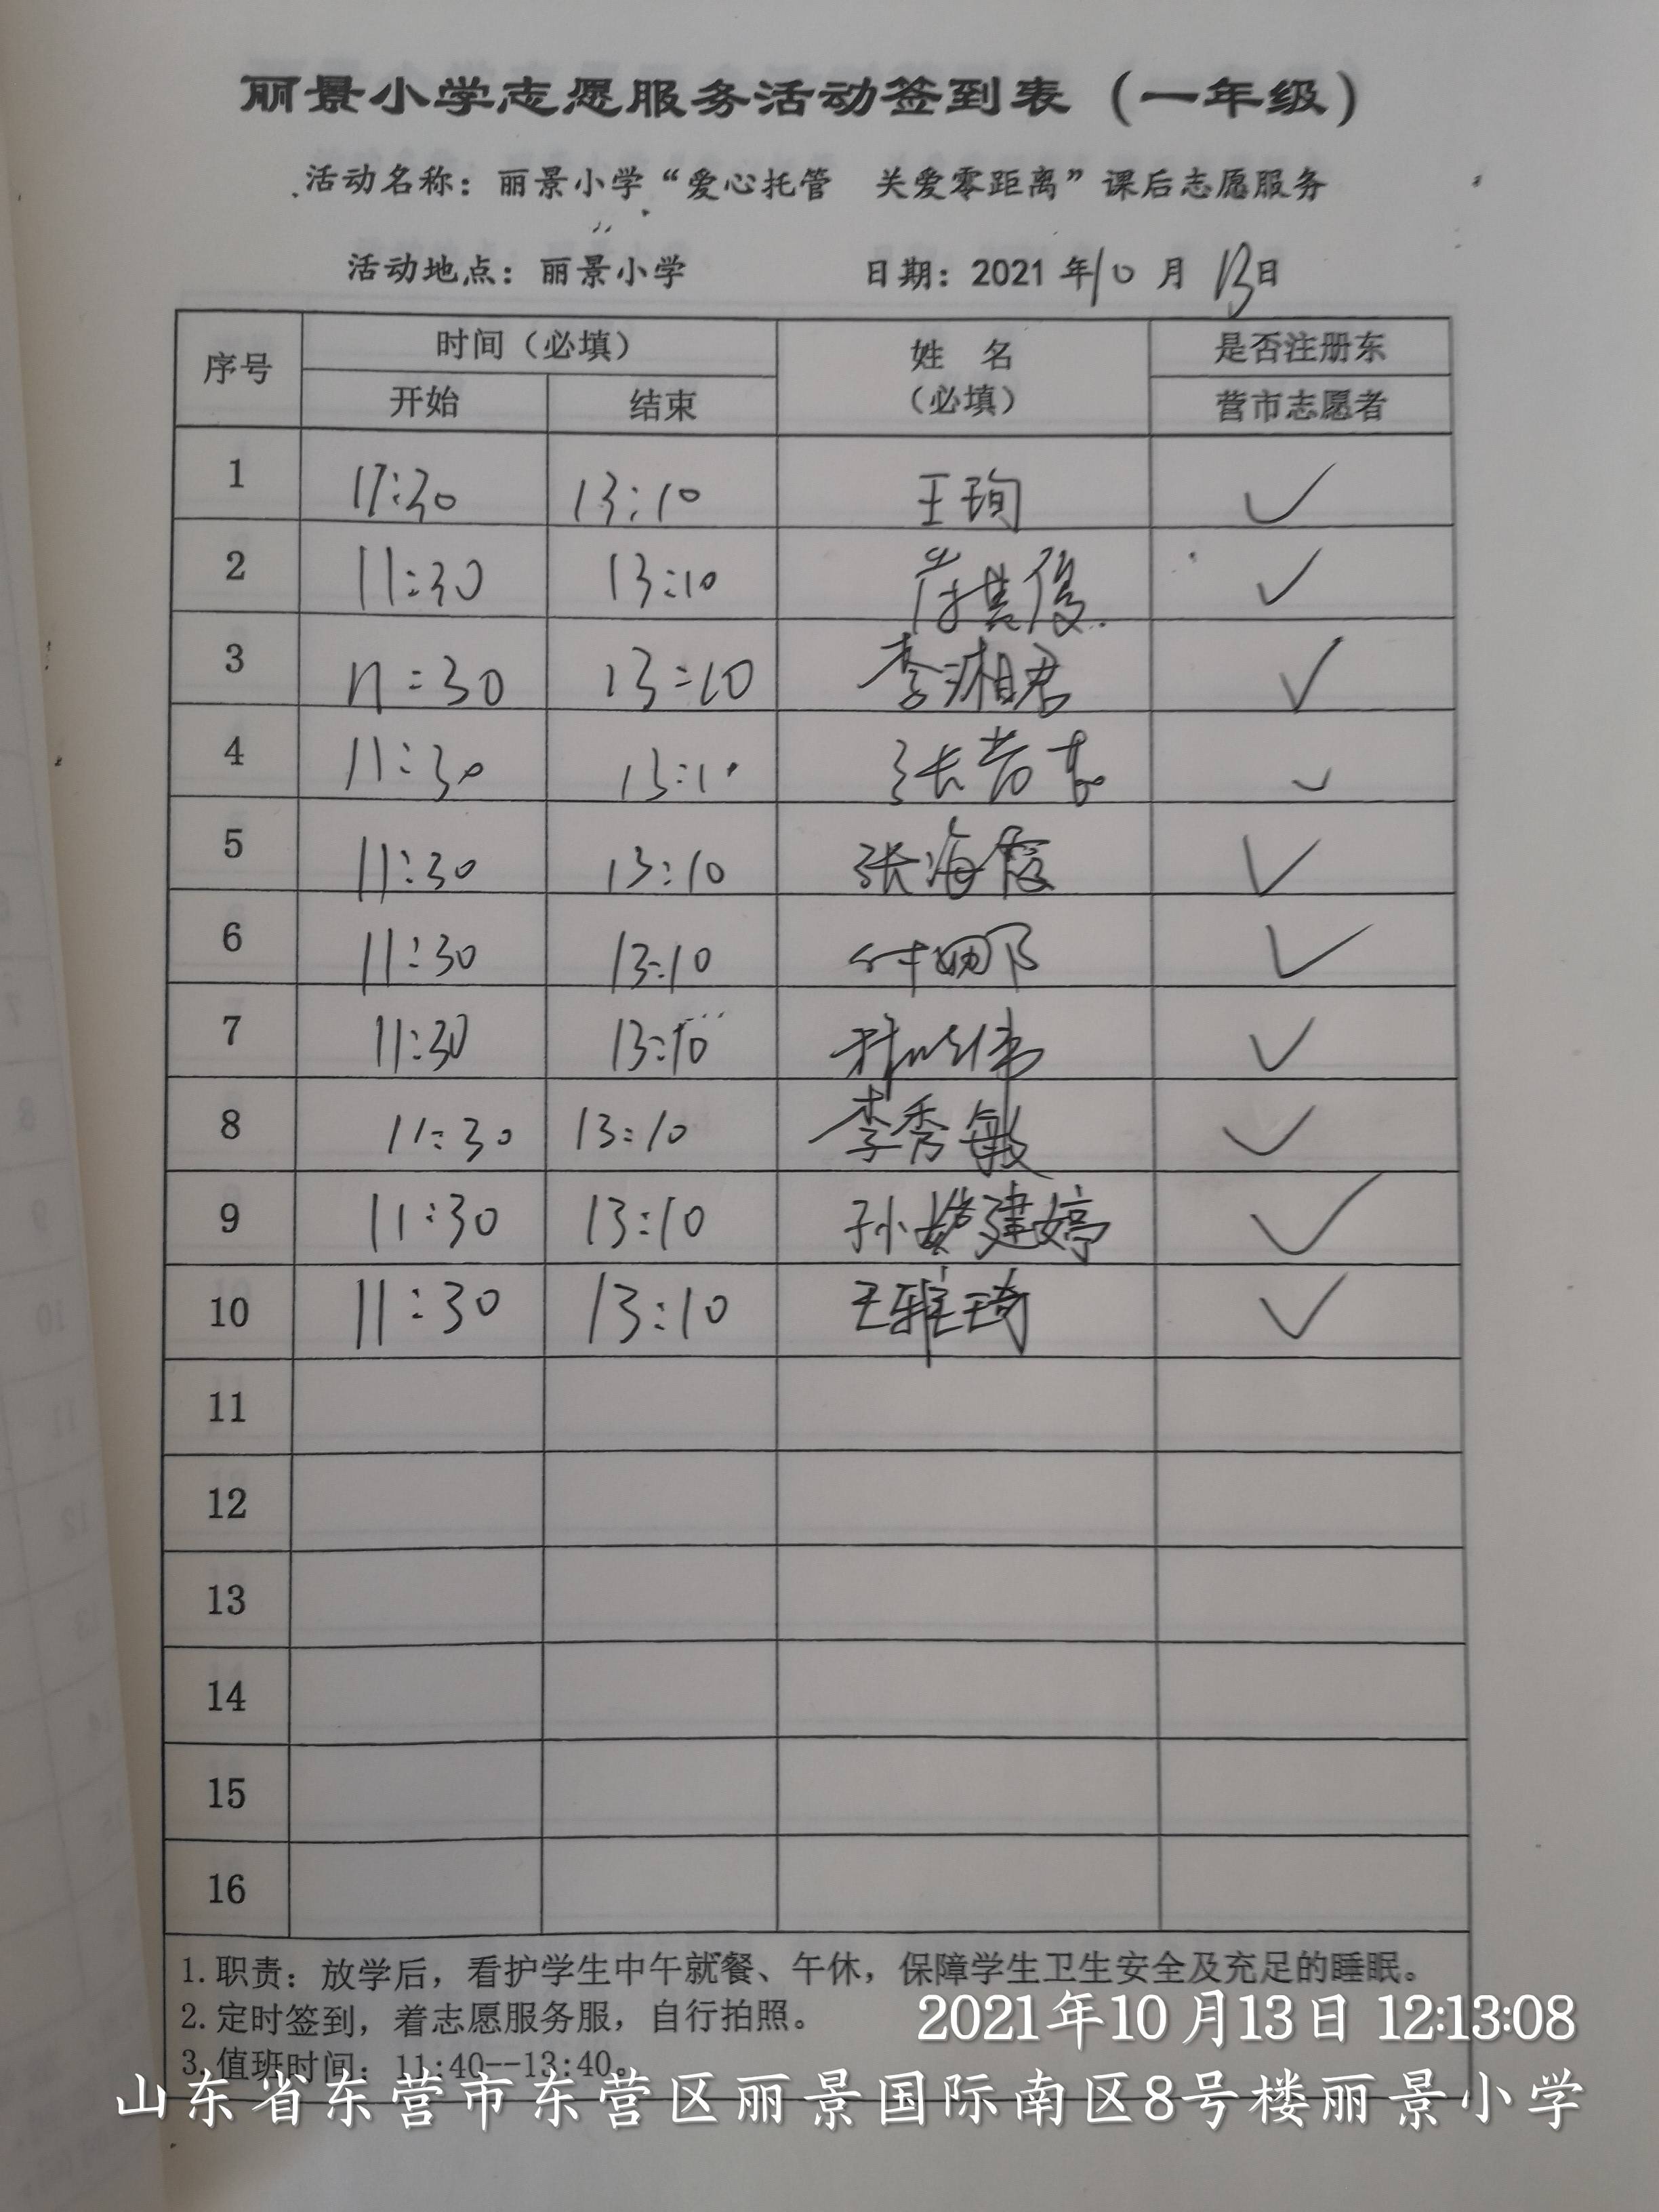 丽景小学志愿服务活动签到表（一年级）
活动名称：丽景小学“爱心托管 关爱零距离”课后志愿服务
活动地点：丽景小学 日期：2021 年 10 月 13 日
序号 时间（必填） 姓 名 是否注册东
开始 结束 （必填） 营市志愿者
1 11:30 13:10 王珣 ✓
2 11:30 13:10 ✓
3 11:30 13:10 李湘君 ✓
4 11:30 13:10 张 ✓
5 11:30 13:10 张海霞 ✓
6 11:30 13:10 ✓
7 11:30 13:10 ✓
8 11:30 13:10 李秀敏 ✓
9 11:30 13:10 孙建婷 ✓
10 11:30 13:10 王雅琦 ✓
11
12
13
14
15
16
1.职责：放学后，看护学生中午就餐、午休，保障学生卫生安全及充足的睡眠。
2.定时签到，着志愿服务服，自行拍照。
2021年10月13日 12:13:08
3.值班时间：11:40--13:40。
山东省东营市东营区丽景国际南区8号楼丽景小学